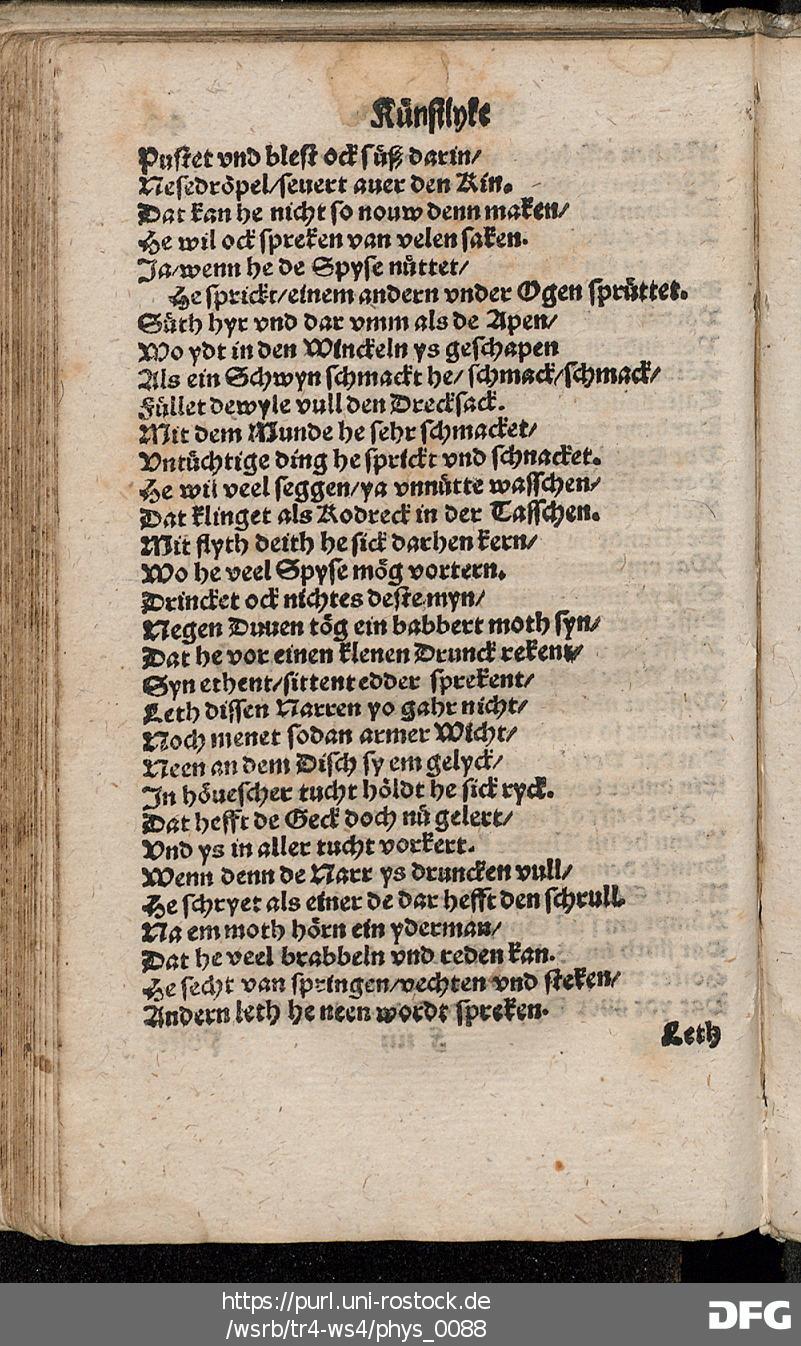 Künstlyke
Pustet vnd blest ock süß darin/
Nesedröpel/seuert auer den Kin.
Dat kan he nicht so nouw denn maken/
He wil ock spreken van velen saken.
Ja/wenn he de Spyse nüttet/
He sprickt/einem andern vnder Ogen sprüttet.
Süth hyr vnd dar vmm als de Apen/
Wo ydt in den Winckeln ys geschapen
Als ein Schwyn schmackt he/ schmack/schmack/
Füllet dewyle vull den Drecksack.
Mit dem Munde he sehr schmacket/
Vntüchtige ding he sprickt vnd schnacket.
He wil veel seggen/ya vnnütte wasschen/
Dat klinget als Kodreck in der Tasschen.
Mit flyth deith he sick darhen kern/
Wo he veel Spyse mög vortern.
Drincket ock nichtes deste myn/
Negen Duuen tög ein babbert moth syn/
Dat he vor einen klenen Drunck rekent/
Syn ethent/sittent edder sprekent/
Leth dissen Narren yo gahr nicht/
Noch menet sodan armer Wicht/
Neen an dem Disch sy em gelyck/
In höuescher tucht höldt he sick ryck.
Dat hefft de Geck doch nü gelert/
Vnd ys in aller tucht vorkert.
Wenn denn de Narr ys druncken vull/
He schryet als einer de dar hefft den schrull.
Na em moth hörn ein yderman/
Dat he veel brabbeln vnd reden kan.
He secht van springen/vechten vnd steken/
Andern leth he neen wordt spreken.
Leth
https://purl.uni-rostock.de
/wsrb/tr4-ws4/phys_0088
DFG